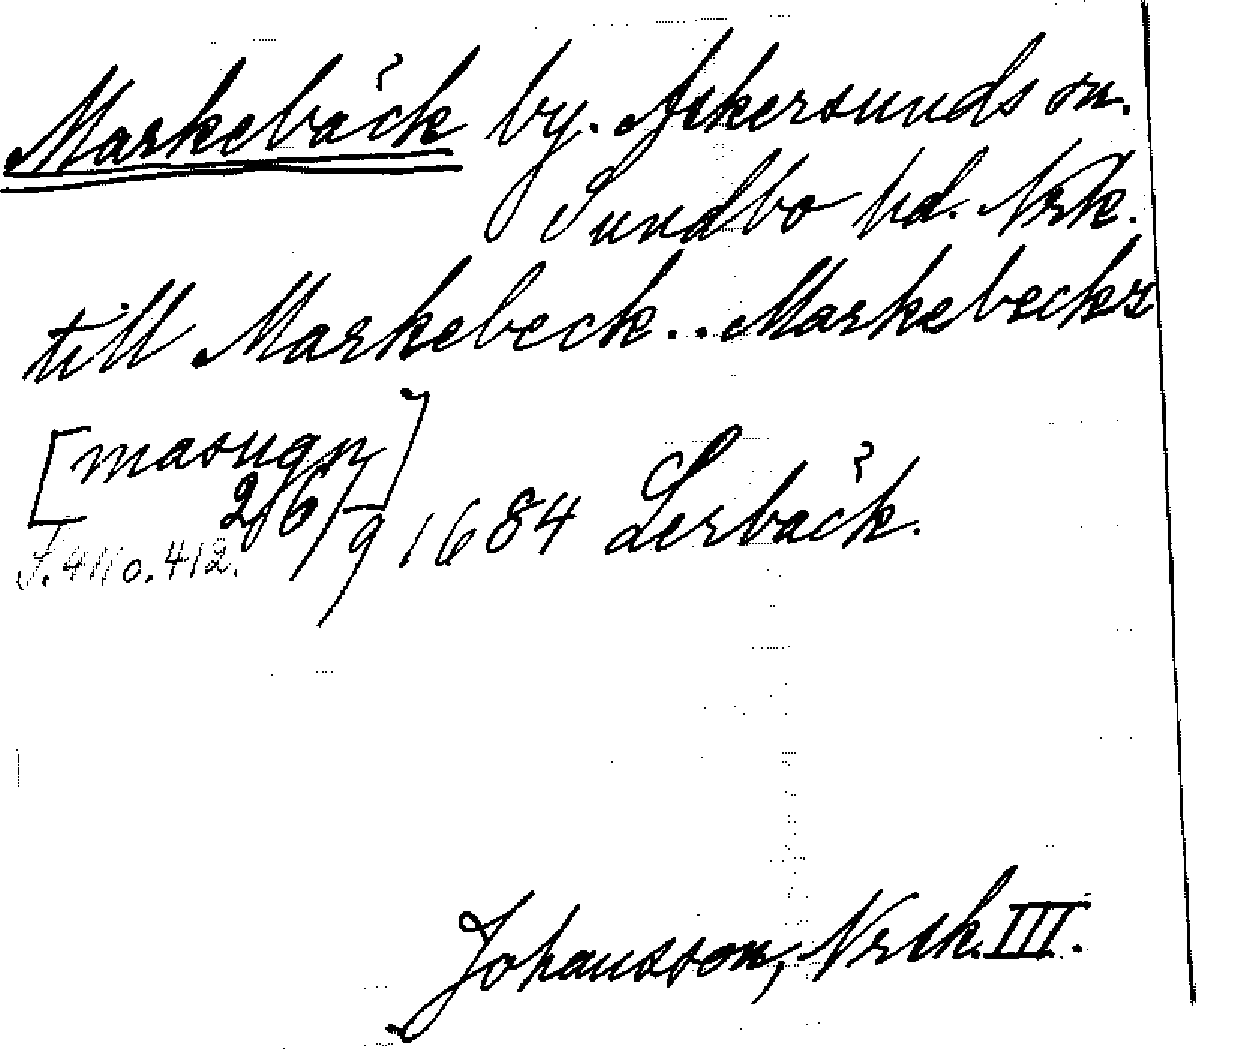 Markebäck by. Askersunds sn.
Sundbo hd. Nrk.
till Markebeck .. Markebecks
[masugn]
26/9 1684 Lerbäck.
J. 4 No. 412.
Johansson, Nrk. III.